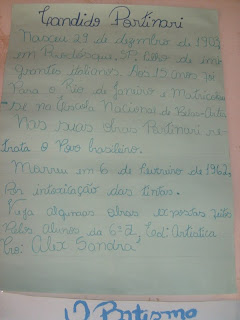 Candido Portinari
Nasceu 29 de dezembro de 1903
em Brodósque, SP, filho de imi-
grantes italianos. Aos 15 anos foi
Para o Rio de Janeiro e Matriculou
-se na Escola Nacional de Belas-Artes
Nas suas obras Portinari re-
trata o Povo brasileiro.
Marreu em 6 de Fevereiro de 1962,
Por intoxicação das tintas.
Veja algumas obras expostas feitas
Pelos Alunos da 6ª 2, Ed: Artistica
Pro: Alex Sandra
O Batismo